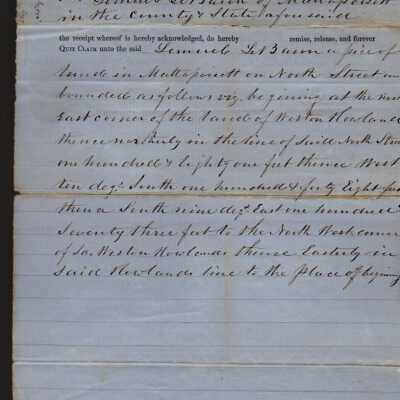 Lemuel LeBaron of Mattapoisett
in the County & State aforesaid
the receipt whereof is hereby acknowledged, do hereby remise, release, and forever
QUIT CLAIM unto the said Lemuel LeBaron a piece of
land in Mattapoisett on North Street and
bounded as follows viz. begining at the
East corner of the land of Weston Howland
thence northerly in the line of Said North Stre
one hundred & Eighty one feet thence West
ten degs. South one hundred & forty Eight feet
thence South nine degs. East one hundred &
Seventy three feet to the North West corner
of Sd. Weston Howlands thence Easterly in
said Howlands line to the place of begining